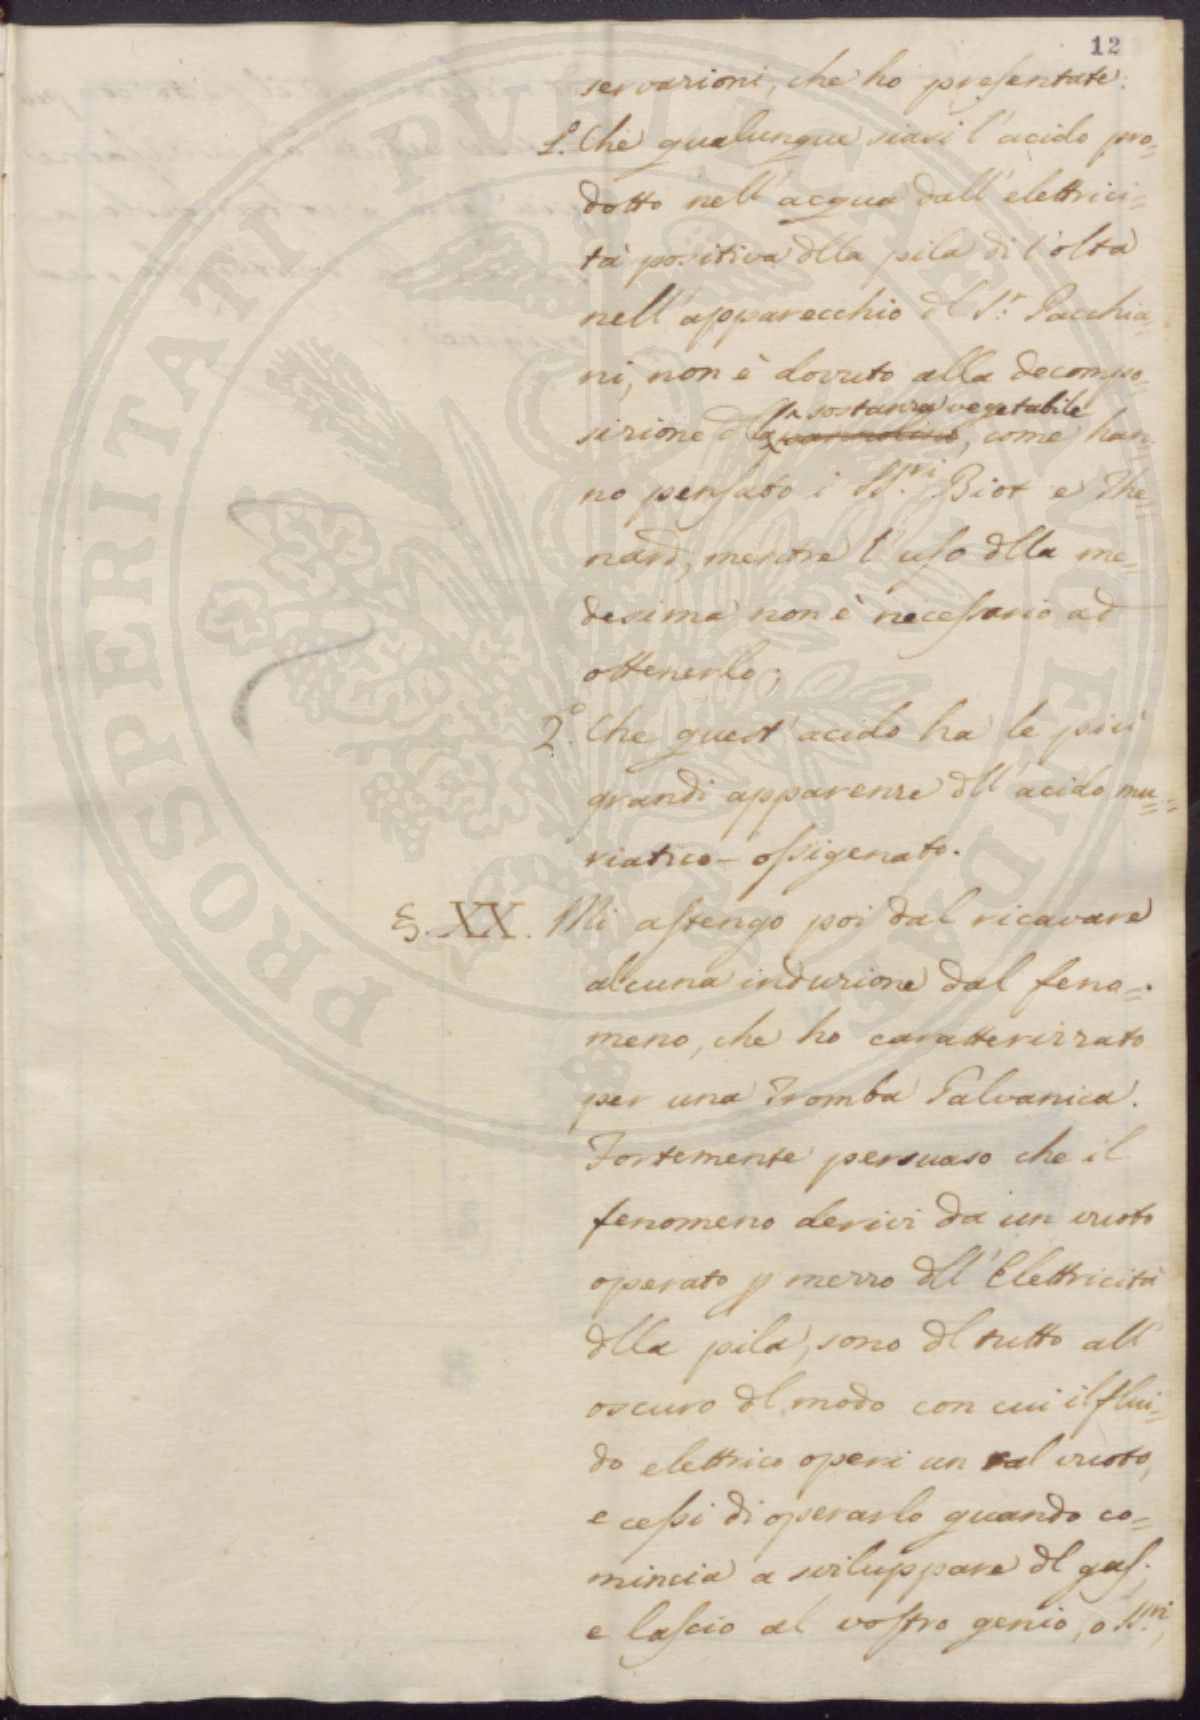 12
servazioni, che ho presentate.
1.° Che qualunque siasi l'acido pro=
dotto nell'acqua dall'elettrici=
tà positiva dlla pila di Volta
nell'apparecchio dl S.r Pacchia=
ni, non è dovuto alla decompo=
la sostanza vegetabile
sizione d, come han=
no pensato i SS.ri Biot e The=
nard, mentre l'uso dlla me=
desima non è necessario ad
ottenerlo;
2.° Che quest'acido ha le più
grandi apparenze dll'acido mu=
riatico-ossigenato.
§. XX. Mi astengo poi dal ricavare
alcuna induzione dal feno=
meno, che ho caratterizzato
per una Tromba Galvanica.
Fortemente persuaso che il
fenomeno derivi da un vuoto
operato p mezzo dll'Elettricità
dlla pila, sono dl tutto all'
oscuro dl modo con cui il flui=
do elettrico operi un tal vuoto,
e cessi di operarlo quando co=
mincia a sviluppare dl gas;
e lascio al vostro genio, o SS.ri,
PROSPERITATI PVBLICAE AVGENDAE